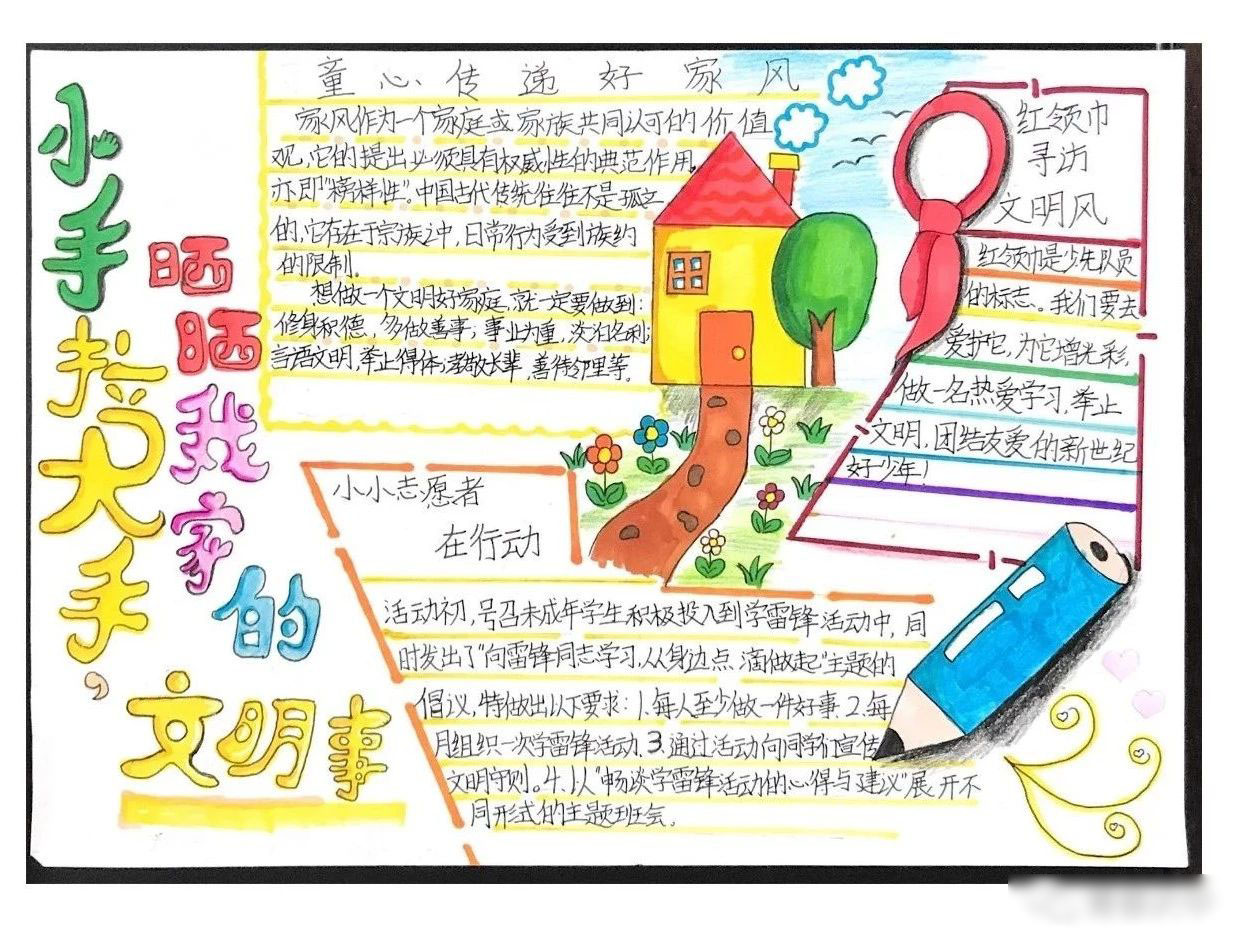 小手拉大手,
晒晒我家的
文明事
童心传递好家风
家风作为一个家庭或家族共同认可的价值
观,它的提出必须具有权威性的典范作用。
亦即"榜样性"。中国古代传统往往不是孤立
的,它存在于宗族之中,日常行为受到族约
的限制。
想做一个文明好家庭,就一定要做到:
修身积德,多做善事;事业为重,淡泊名利;
言语文明,举止得体;孝敬长辈,善待邻里等。
红领巾
寻访
文明风
红领巾是少先队员
的标志。我们要去
爱护它,为它增光彩,
做一名热爱学习,举止
文明,团结友爱的新世纪
好少年!
小小志愿者
在行动
活动初,号召未成年学生积极投入到学雷锋活动中,同
时发出了"向雷锋同志学习,从身边点滴做起"主题的
倡议,特做出以下要求:1.每人至少做一件好事.2.每
月组织一次学雷锋活动.3.通过活动向同学们宣传
文明守则。4.以"畅谈学雷锋活动的心得与建议"展开不
同形式的主题班会。